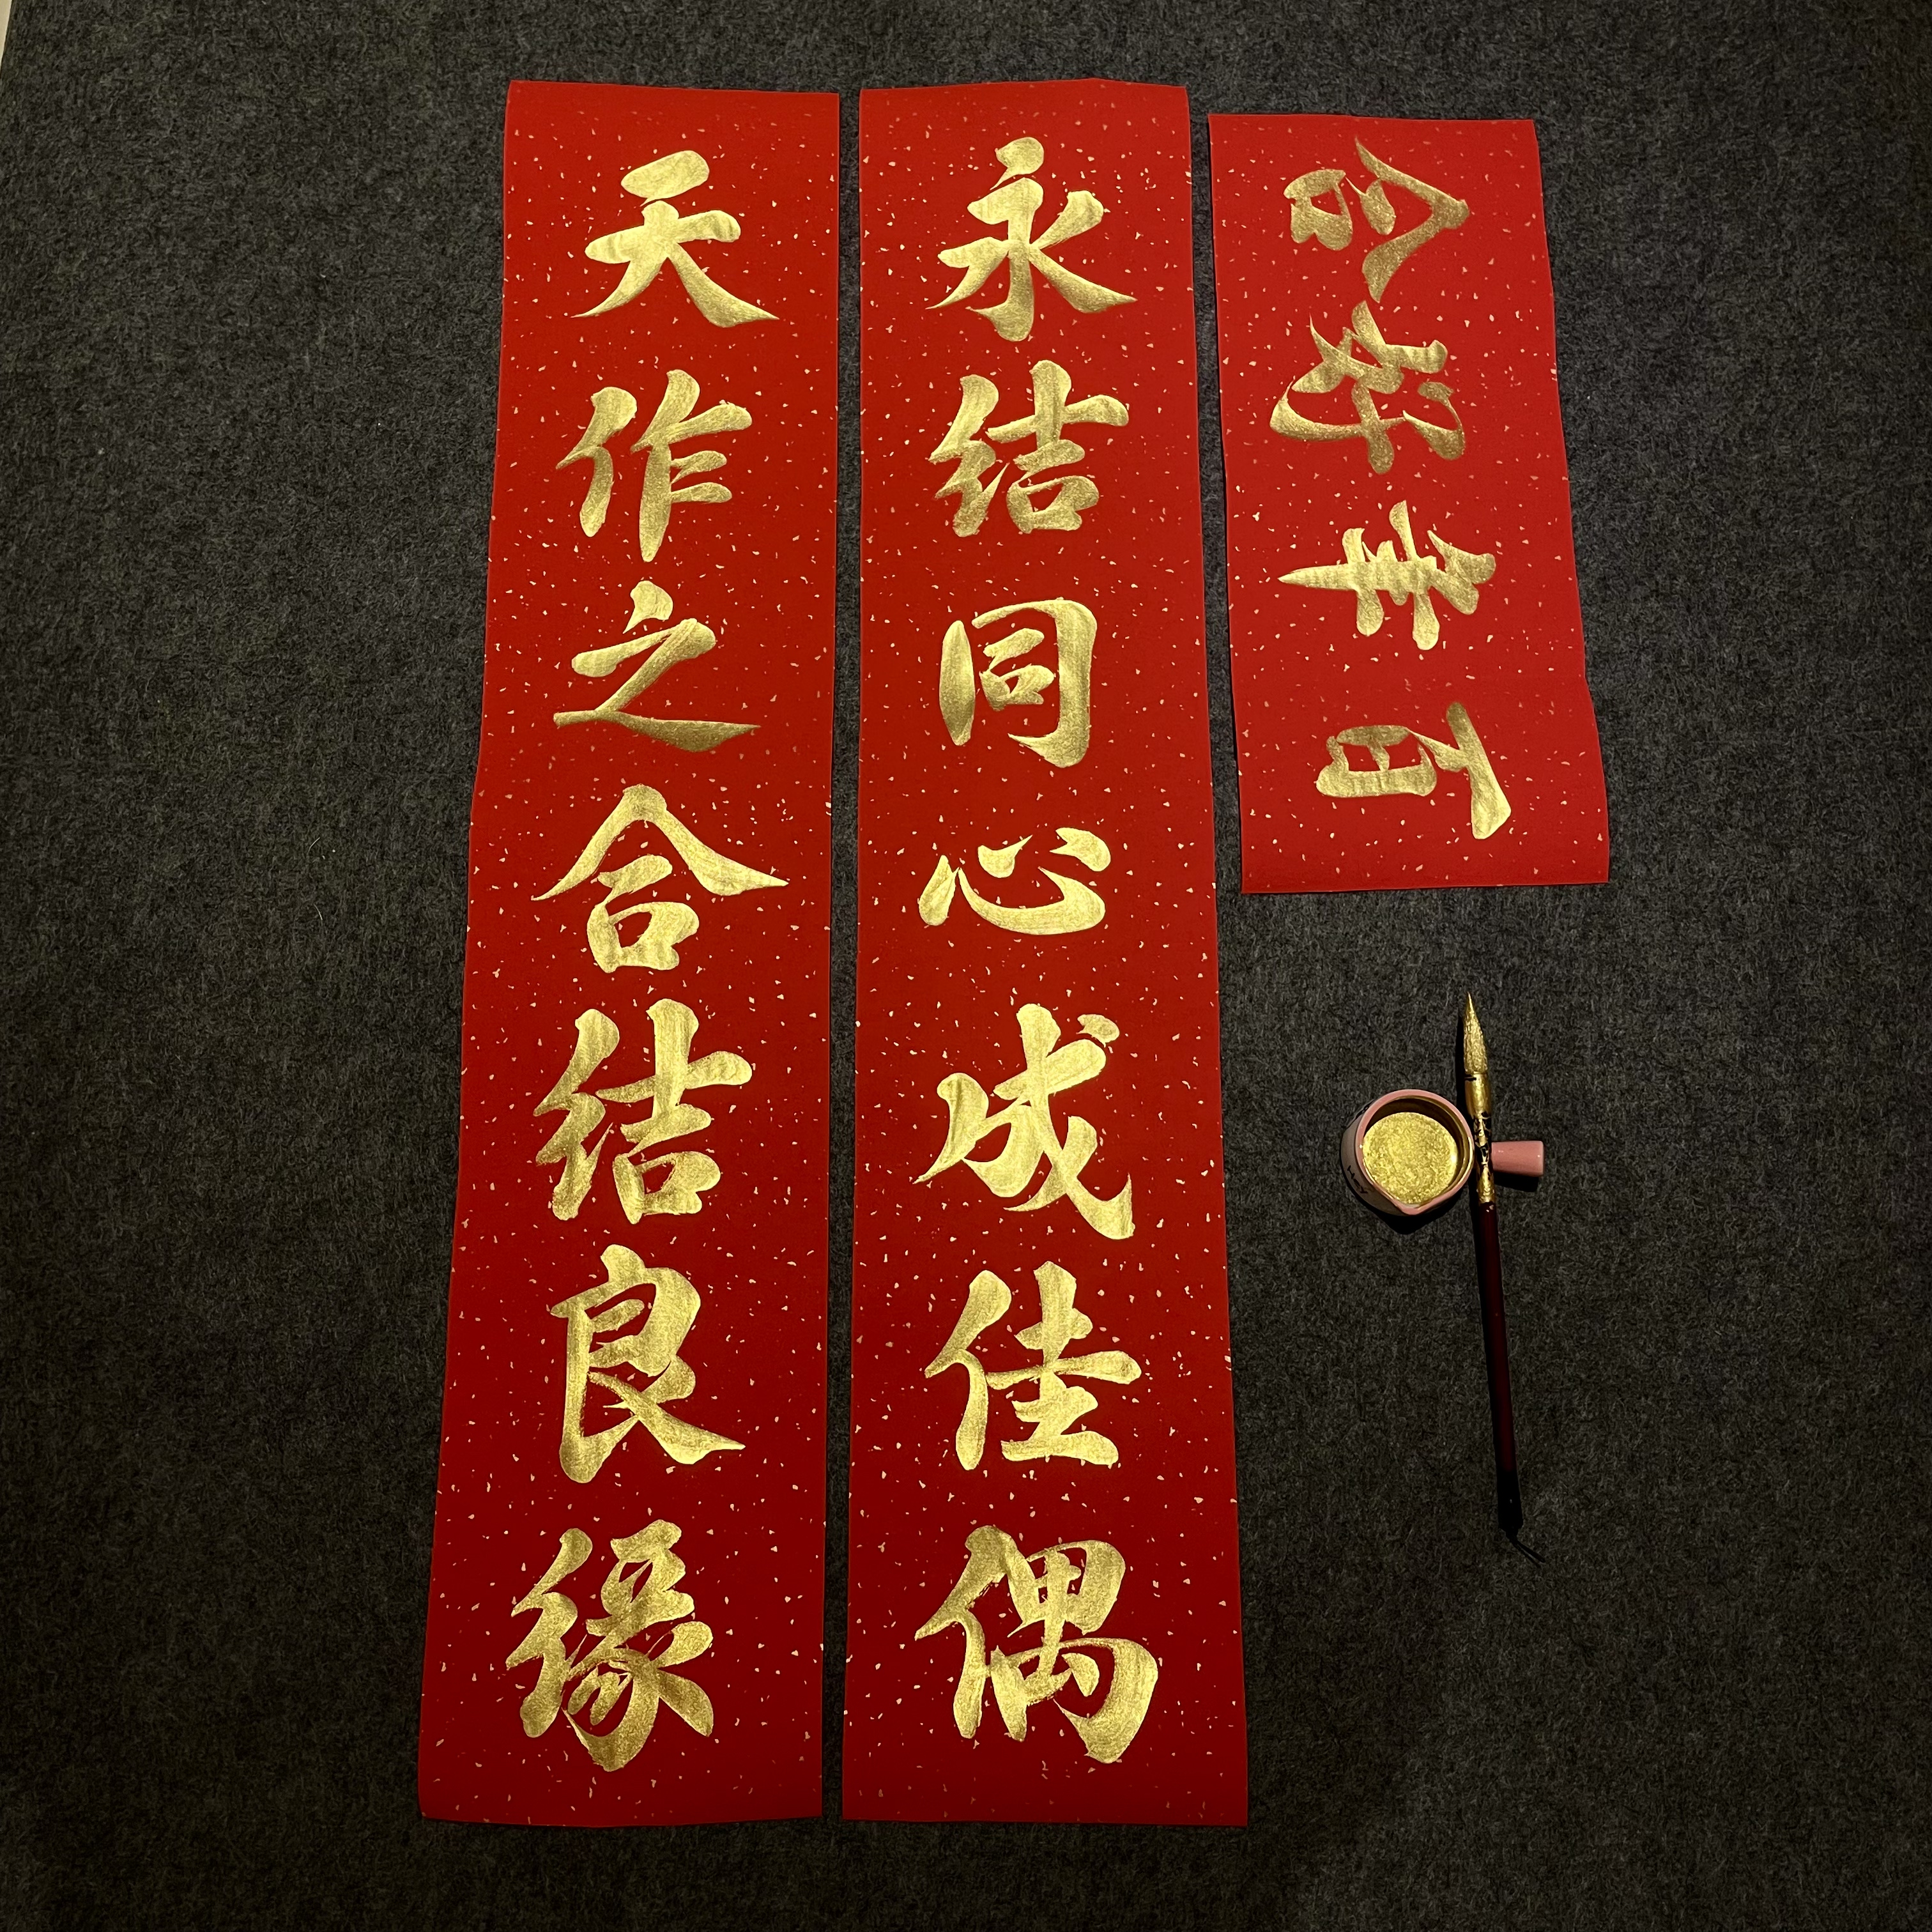 百年好合
永结同心成佳偶
天作之合结良缘